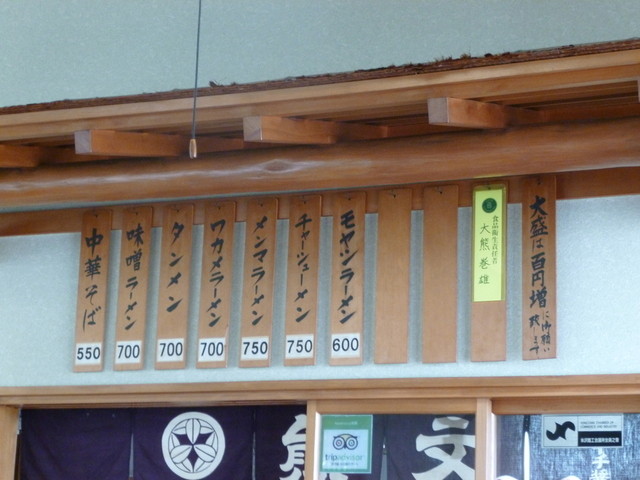 大盛は百円増
に御願い
致します
食品衛生責任者
大熊巻雄
モヤシラーメン
600
チャーシューメン
750
メンマラーメン
750
ワカメラーメン
700
タンメン
700
味噌ラーメン
700
中華そば
550
熊
文
tripadvisor